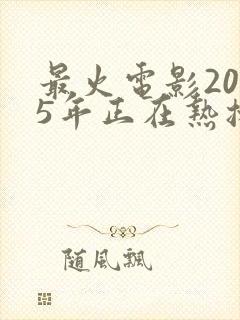 最火電影20
5年正在熱
隨風飄